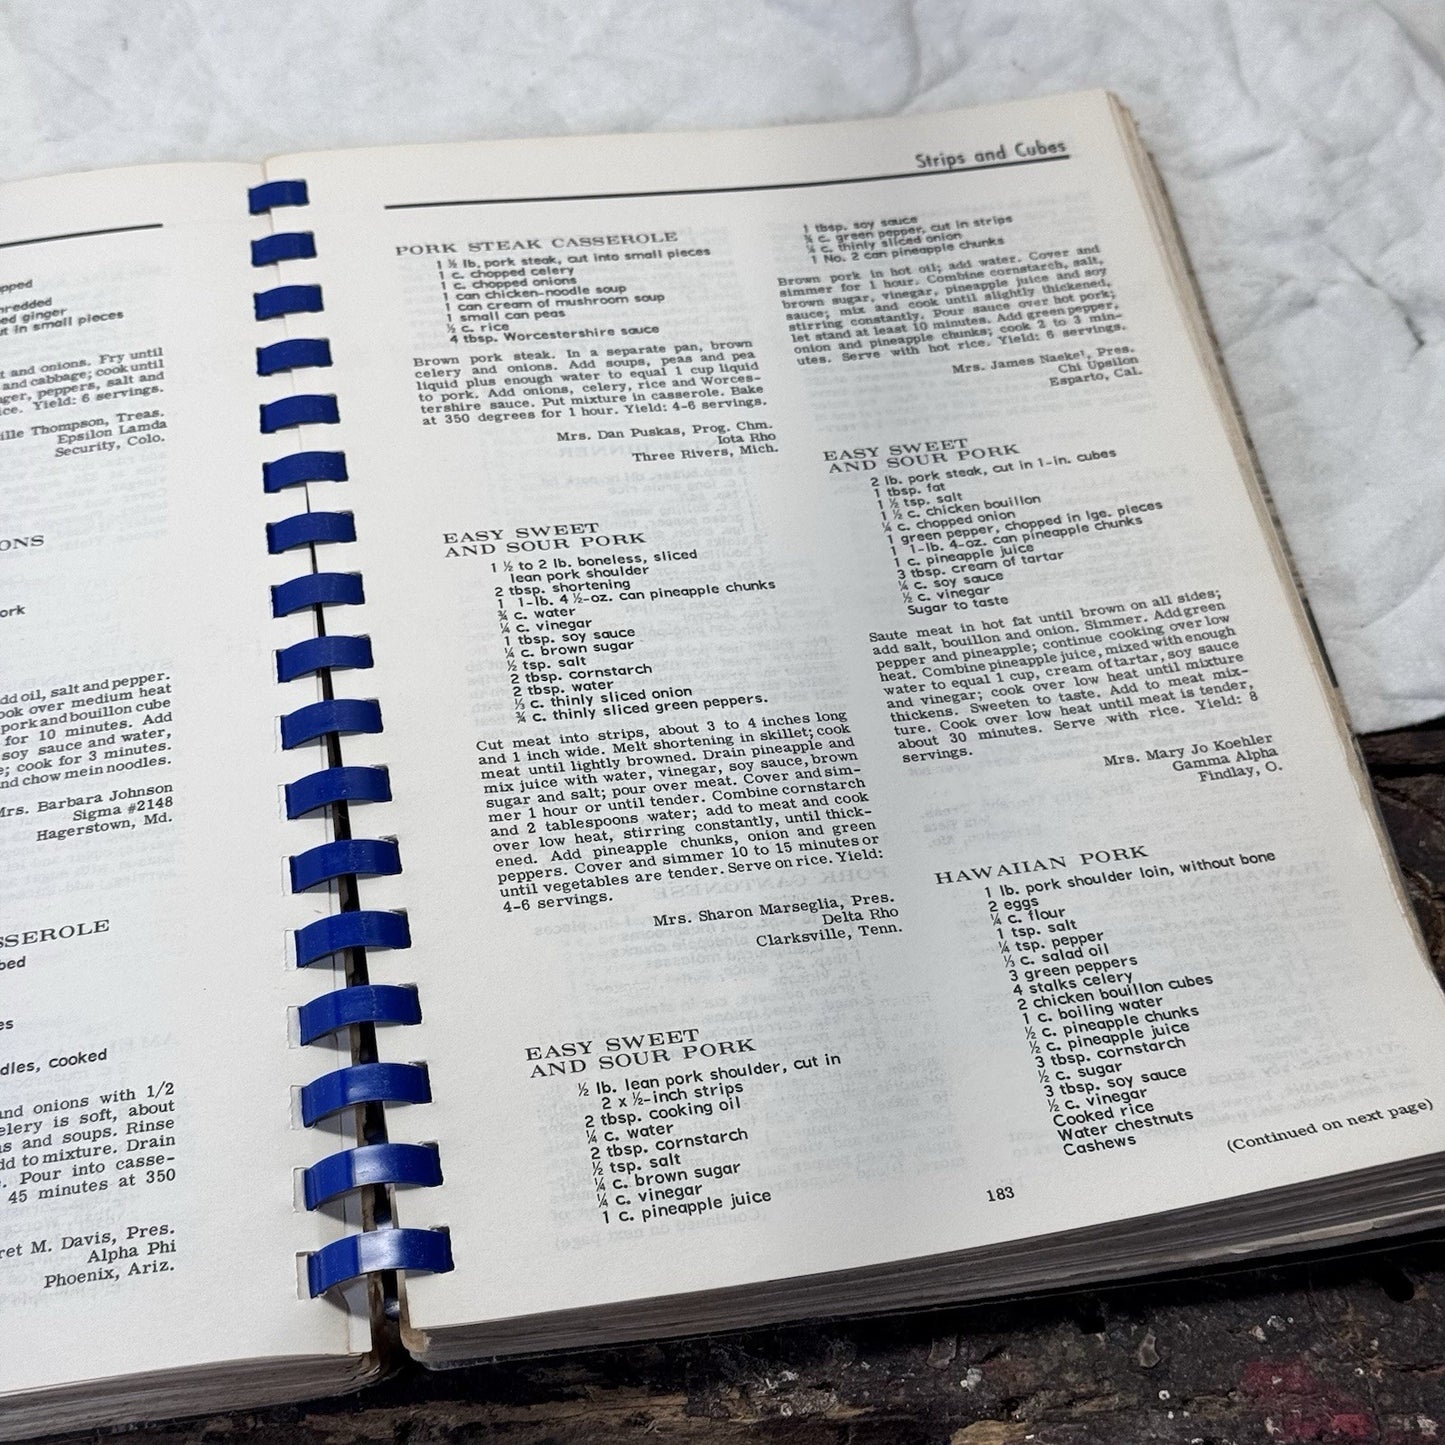 opped
hredded
ed ginger
ut in small pieces
t and onions. Fry until
and cabbage; cook until
ger, peppers, salt and
ice. Yield: 6 servings.
ille Thompson, Treas.
Epsilon Lamda
Security, Colo.
ONS
ork
dd oil, salt and pepper.
ook over medium heat
pork and bouillon cube
for 10 minutes. Add
soy sauce and water,
e; cook for 3 minutes.
nd chow mein noodles.
Mrs. Barbara Johnson
Sigma #2148
Hagerstown, Md.
SSEROLE
bed
es
dles, cooked
and onions with 1/2
elery is soft, about
ns and soups. Rinse
dd to mixture. Drain
. Pour into casse-
45 minutes at 350
ret M. Davis, Pres.
Alpha Phi
Phoenix, Ariz.
Strips and Cubes
PORK STEAK CASSEROLE
1 ½ lb. pork steak, cut into small pieces
1 c. chopped celery
1 c. chopped onions
1 can chicken-noodle soup
1 can cream of mushroom soup
1 small can peas
½ c. rice
4 tbsp. Worcestershire sauce
Brown pork steak. In a separate pan, brown
celery and onions. Add soups, peas and pea
liquid plus enough water to equal 1 cup liquid
to pork. Add onions, celery, rice and Worces-
tershire sauce. Put mixture in casserole. Bake
at 350 degrees for 1 hour. Yield: 4-6 servings.
Mrs. Dan Puskas, Prog. Chm.
Iota Rho
Three Rivers, Mich.
EASY SWEET
AND SOUR PORK
1 ½ to 2 lb. boneless, sliced
lean pork shoulder
2 tbsp. shortening
1 1-lb. 4 ½-oz. can pineapple chunks
¾ c. water
¼ c. vinegar
1 tbsp. soy sauce
¼ c. brown sugar
½ tsp. salt
2 tbsp. cornstarch
2 tbsp. water
⅓ c. thinly sliced onion
¾ c. thinly sliced green peppers.
Cut meat into strips, about 3 to 4 inches long
and 1 inch wide. Melt shortening in skillet; cook
meat until lightly browned. Drain pineapple and
mix juice with water, vinegar, soy sauce, brown
sugar and salt; pour over meat. Cover and sim-
mer 1 hour or until tender. Combine cornstarch
and 2 tablespoons water; add to meat and cook
over low heat, stirring constantly, until thick-
ened. Add pineapple chunks, onion and green
peppers. Cover and simmer 10 to 15 minutes or
until vegetables are tender. Serve on rice. Yield:
4-6 servings.
Mrs. Sharon Marseglia, Pres.
Delta Rho
Clarksville, Tenn.
EASY SWEET
AND SOUR PORK
½ lb. lean pork shoulder, cut in
2 x ½-inch strips
2 tbsp. cooking oil
¼ c. water
2 tbsp. cornstarch
½ tsp. salt
¼ c. brown sugar
¼ c. vinegar
1 c. pineapple juice
1 tbsp. soy sauce
¾ c. green pepper, cut in strips
¼ c. thinly sliced onion
1 No. 2 can pineapple chunks
Brown pork in hot oil; add water. Cover and
simmer for 1 hour. Combine cornstarch, salt,
brown sugar, vinegar, pineapple juice and soy
sauce; mix and cook until slightly thickened,
stirring constantly. Pour sauce over hot pork;
let stand at least 10 minutes. Add green pepper,
onion and pineapple chunks; cook 2 to 3 min-
utes. Serve with hot rice. Yield: 6 servings.
Mrs. James Naeket, Pres.
Chi Upsilon
Esparto, Cal.
EASY SWEET
AND SOUR PORK
2 lb. pork steak, cut in 1-in. cubes
1 tbsp. fat
1 ½ tsp. salt
1 ½ c. chicken bouillon
¼ c. chopped onion
1 green pepper, chopped in lge. pieces
1 1-lb. 4-oz. can pineapple chunks
1 c. pineapple juice
3 tbsp. cream of tartar
¼ c. soy sauce
½ c. vinegar
Sugar to taste
Saute meat in hot fat until brown on all sides;
add salt, bouillon and onion. Simmer. Add green
pepper and pineapple; continue cooking over low
heat. Combine pineapple juice, mixed with enough
water to equal 1 cup, cream of tartar, soy sauce
and vinegar; cook over low heat until mixture
thickens. Sweeten to taste. Add to meat mix-
ture. Cook over low heat until meat is tender,
about 30 minutes. Serve with rice. Yield: 8
servings.
Mrs. Mary Jo Koehler
Gamma Alpha
Findlay, O.
HAWAIIAN PORK
1 lb. pork shoulder loin, without bone
2 eggs
¼ c. flour
1 tsp. salt
¼ tsp. pepper
⅓ c. salad oil
3 green peppers
4 stalks celery
2 chicken bouillon cubes
1 c. boiling water
½ c. pineapple chunks
½ c. pineapple juice
3 tbsp. cornstarch
½ c. sugar
3 tbsp. soy sauce
½ c. vinegar
Cooked rice
Water chestnuts
Cashews
(Continued on next page)
183